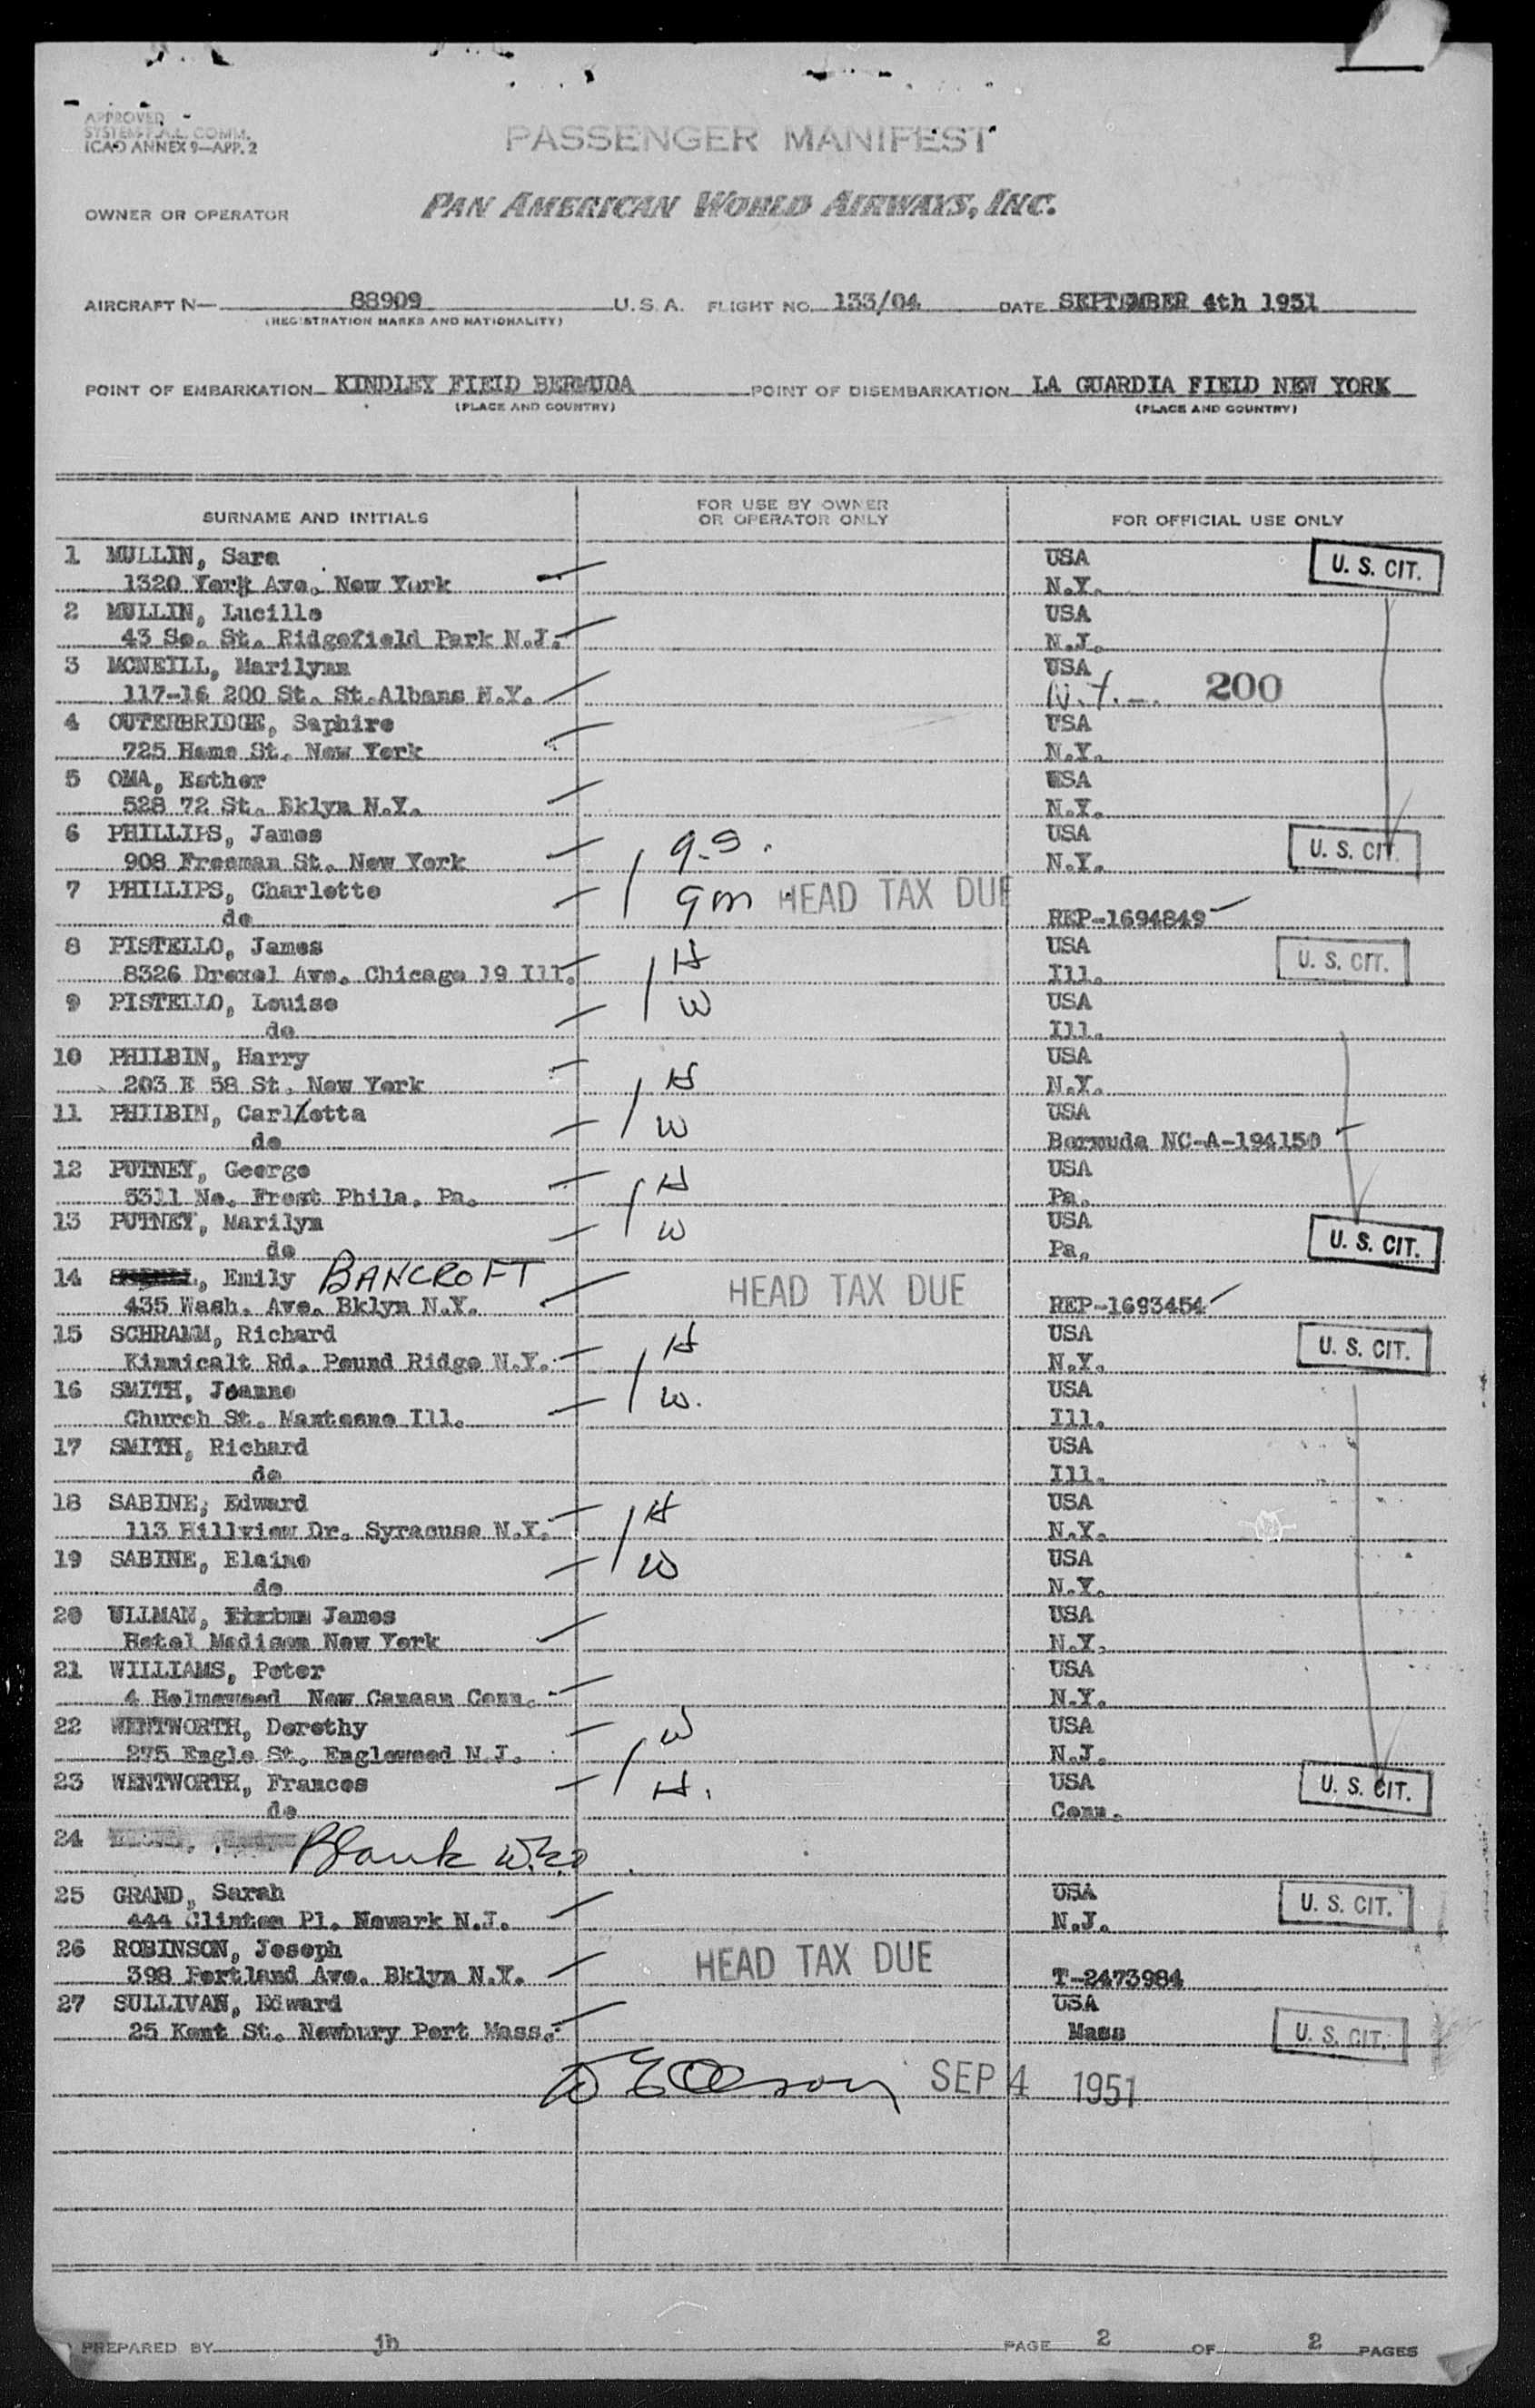 APPROVED
SYSTEM F.A.L. COMM.
ICAO ANNEX 9—APP. 2
PASSENGER MANIFEST
OWNER OR OPERATOR PAN AMERICAN WORLD AIRWAYS, INC.
AIRCRAFT N— 88909 U.S.A. FLIGHT NO. 133/04 DATE SEPTEMBER 4th 1951
(REGISTRATION MARKS AND NATIONALITY)
POINT OF EMBARKATION KINDLEY FIELD BERMUDA POINT OF DISEMBARKATION LA GUARDIA FIELD NEW YORK
(PLACE AND COUNTRY) (PLACE AND COUNTRY)
SURNAME AND INITIALS FOR USE BY OWNER OR OPERATOR ONLY FOR OFFICIAL USE ONLY
1 MULLIN, Sara USA U. S. CIT.
1320 York Ave. New York N.Y.
2 MULLIN, Lucille USA
43 So. St. Ridgefield Park N.J. N.J.
3 MCNEILL, Marilynn USA
117-16 200 St. St.Albans N.Y. N.Y. 200
4 OUTERBRIDGE, Saphire USA
725 Home St. New York N.Y.
5 OMA, Esther USA
528 72 St. Bklyn N.Y. N.Y.
6 PHILLIPS, James USA U. S. CIT.
908 Freeman St. New York N.Y.
7 PHILLIPS, Charlotte HEAD TAX DUE
do REP-1694849
8 PISTELLO, James H USA U. S. CIT.
8326 Drexel Ave. Chicago 19 Ill. Ill.
9 PISTELLO, Louise W USA
do Ill.
10 PHILBIN, Harry H USA
203 E 58 St. New York N.Y.
11 PHILBIN, Carllotta W USA
do Bermuda NC-A-194150
12 PUTNEY, George H USA
5311 No. Front Phila. Pa. Pa.
13 PUTNEY, Marilyn W USA
do Pa. U. S. CIT.
14 , Emily BANCROFT HEAD TAX DUE
435 Wash. Ave. Bklyn N.Y. REP-1693454
15 SCHRAMM, Richard H USA U. S. CIT.
Kinnicalt Rd. Pound Ridge N.Y. N.Y.
16 SMITH, Joanne W. USA
Church St. Manteno Ill. Ill.
17 SMITH, Richard USA
do Ill.
18 SABINE, Edward H USA
113 Hillview Dr. Syracuse N.Y. N.Y.
19 SABINE, Elaine W USA
do N.Y.
20 ULLMAN, James USA
Hotel Madison New York N.Y.
21 WILLIAMS, Peter USA
4 Holmewood New Canaan Conn. N.Y.
22 WENTWORTH, Dorothy W USA
275 Engle St. Englewood N.J. N.J.
23 WENTWORTH, Frances H. USA U. S. CIT.
do Conn.
24 Blank
25 GRAND, Sarah USA U. S. CIT.
444 Clinton Pl. Newark N.J. N.J.
26 ROBINSON, Joseph HEAD TAX DUE
398 Portland Ave. Bklyn N.Y. T-2473984
27 SULLIVAN, Edward USA
25 Kent St. Newbury Port Mass. Mass U. S. CIT.
SEP 4 1951
PREPARED BY jb PAGE 2 OF 2 PAGES